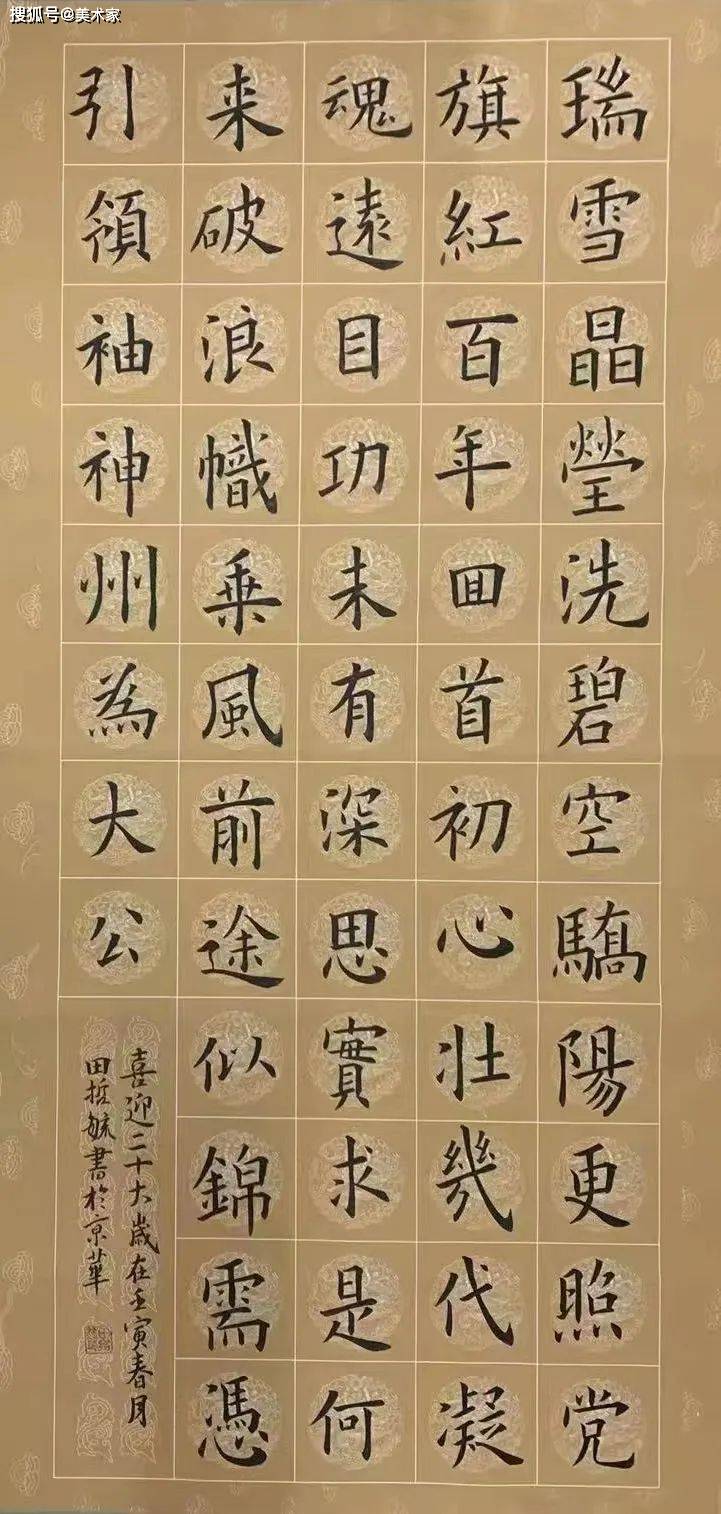 搜狐号@美术家
瑞雪晶瑩洗碧空驕陽更照党
旗紅百年回首初心壮幾代凝
魂遠目功未有深思實求是何
来破浪幟乗風前途似錦需憑
引領袖神州為大公
喜迎二十大歲在壬寅春月
田哲毓書於京華